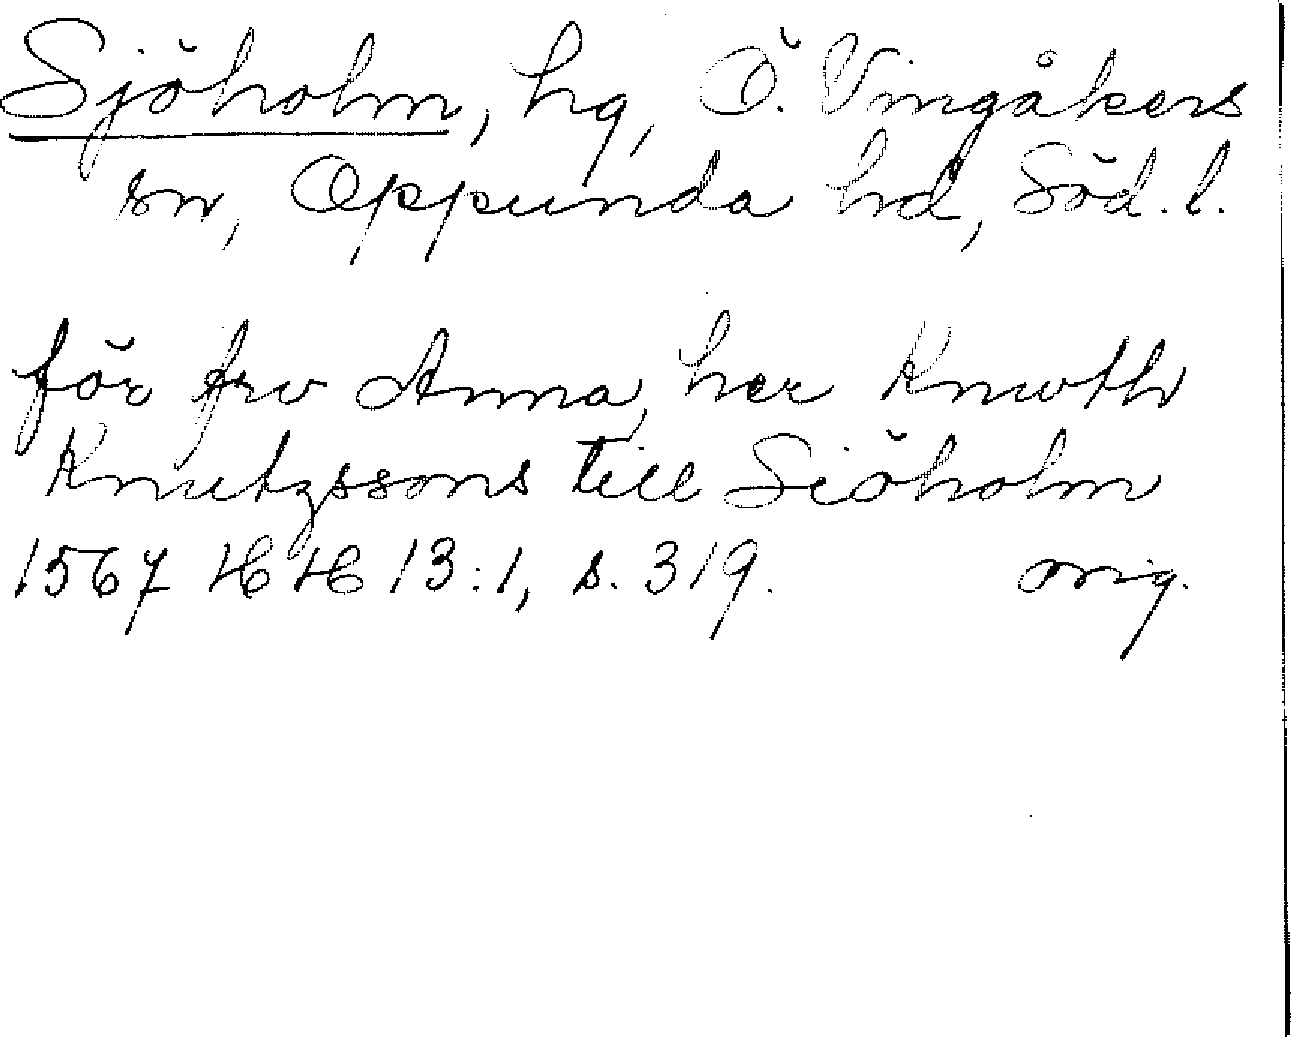 Sjöholm, hg, Ö. Vingåkers
sn, Oppunda hd, Söd. l.
för frv Anna, her Knwth
Knutzssons till Siöholm
1567 HH 13:1, s. 319. orig.